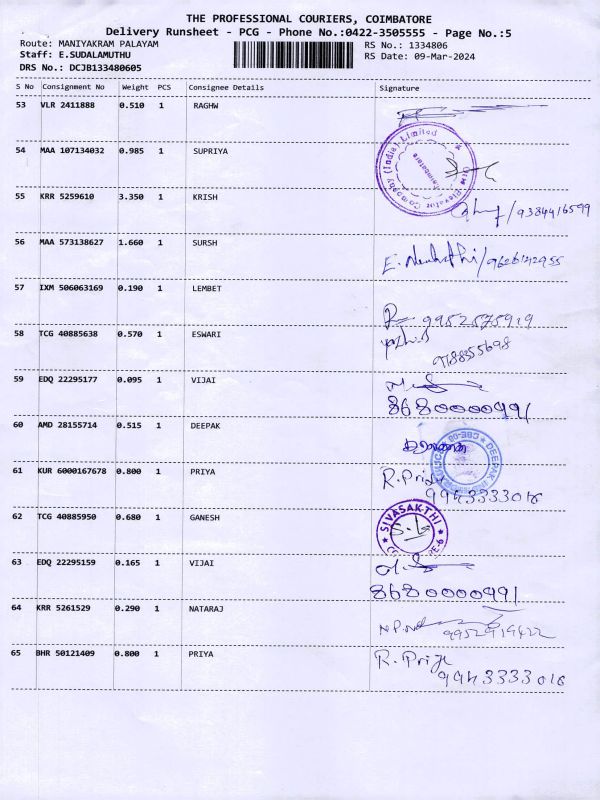 THE PROFESSIONAL COURIERS, COIMBATORE
Delivery Runsheet - PCG - Phone No.:0422-3505555 - Page No.:5
Route: MANIYAKRAM PALAYAM RS No.: 1334806
Staff: E.SUDALAMUTHU RS Date: 09-Mar-2024
DRS No.: DCJB133480605
S No Consignment No Weight PCS Consignee Details Signature
53 VLR 2411888 0.510 1 RAGHW
54 MAA 107134032 0.985 1 SUPRIYA
Elevator Company (India) Limited
Coimbatore
55 KRR 5259610 3.350 1 KRISH
/9384416599
56 MAA 573138627 1.660 1 SURSH
E.
57 IXM 506063169 0.190 1 LEMBET
58 TCG 40885638 0.570 1 ESWARI
9788355698
59 EDQ 22295177 0.095 1 VIJAI
8680000991
60 AMD 28155714 0.515 1 DEEPAK
DEEPAK
61 KUR 6000167678 0.800 1 PRIYA
R. Priya
9943333018
62 TCG 40885950 0.680 1 GANESH
SIVASAKTHI
63 EDQ 22295159 0.165 1 VIJAI
8680000991
64 KRR 5261529 0.290 1 NATARAJ
65 BHR 50121409 0.800 1 PRIYA
R. Priya
9943333018